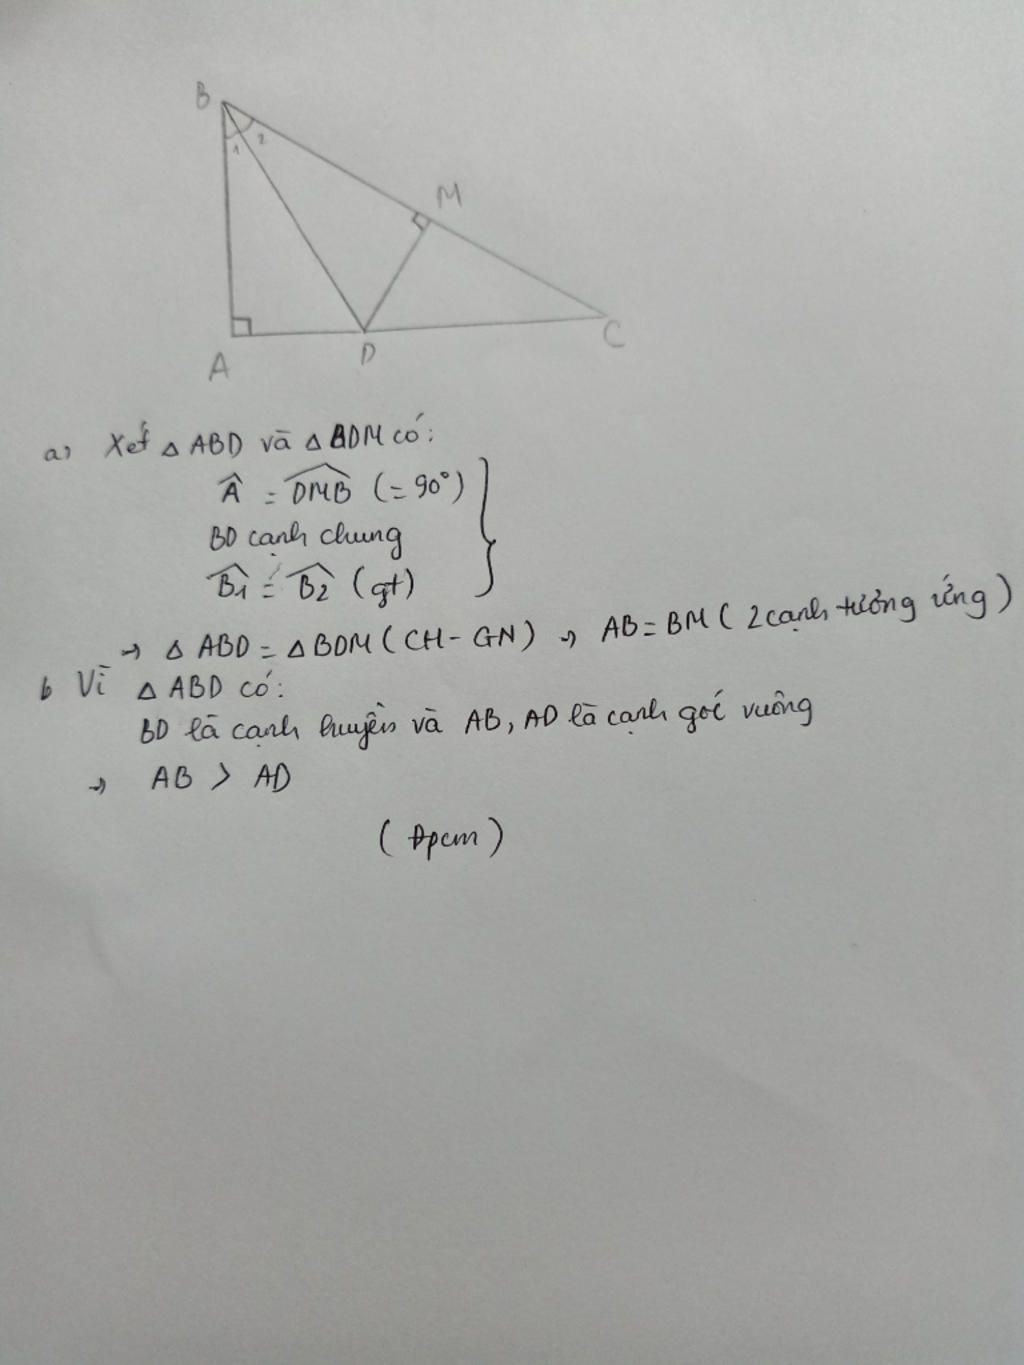 B
1
2
M
A
D
C
a) Xét △ ABD và △ BDM có:
Â = DMB (= 90°)
BD cạnh chung
B1 = B2 (gt)
→ △ ABD = △ BDM ( CH - GN ) → AB = BM ( 2 cạnh tương ứng )
b Vì △ ABD có:
BD là cạnh huyền và AB, AD là cạnh góc vuông
→ AB > AD
( Đpcm )